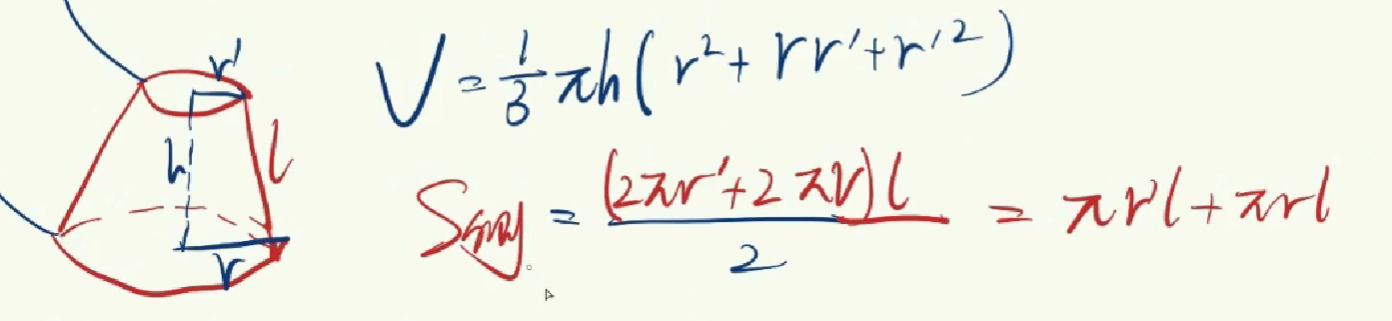 r'
h
l
r
V = 1/3 πh(r² + rr' + r'²)
S = (2πr' + 2πr)l / 2 = πr'l + πrl